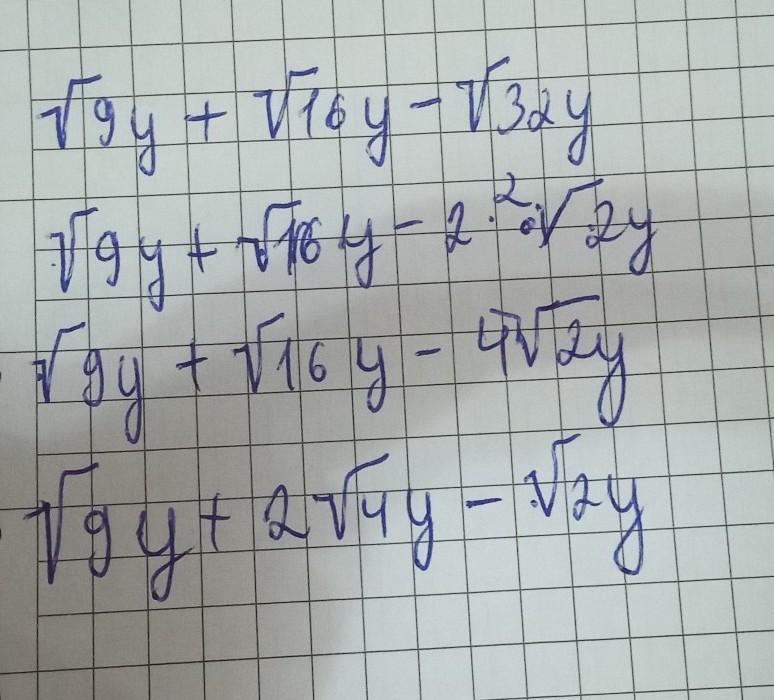 √9y + √16y - √32y
√9y + √16y - 2·2·√2y
√9y + √16y - 4√2y
√9y + 2√4y - √2y